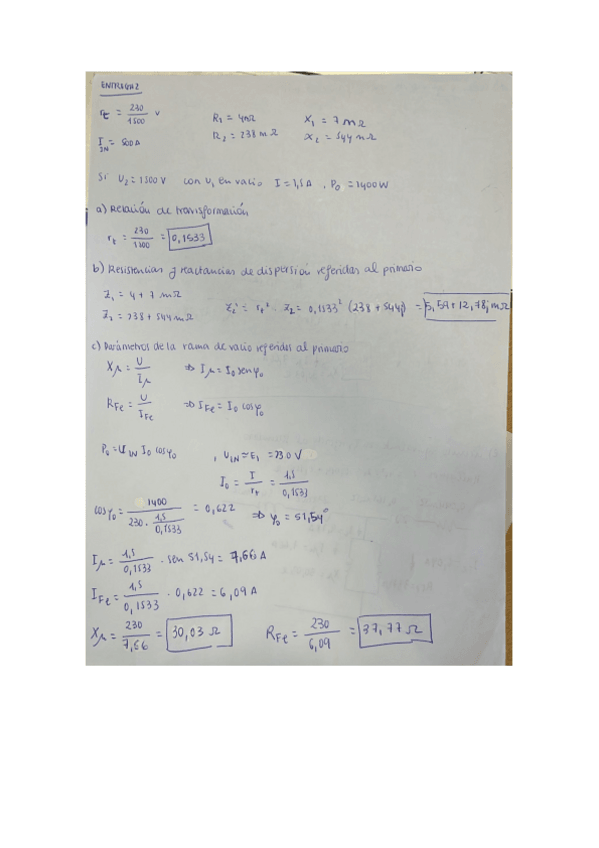 ENTREGA 2
rt = 230/1500 V    R1 = 4mΩ    X1 = 7mΩ
I2N = 500A    R2 = 238 mΩ    X2 = 544 mΩ
Si U2 = 1300 V con U1 en vacío I = 1,5 A, P0 = 1400 W
a) Relación de transformación
rt = 230/1300 = 0,1533
b) Resistencias y reactancias de dispersión referidas al primario
Z1 = 4 + 7 mΩ
Z2 = 238 + 544 mΩ    Z2' = rt² · Z2 = 0,1533² (238 + 544j) = 5,59 + 12,78j mΩ
c) Parámetros de la rama de vacío referidos al primario
Xμ = U/Iμ ⇒ Iμ = I0 sen φ0
RFe = U/IFe ⇒ IFe = I0 cos φ0
P0 = U1N I0 cos φ0 , U1N ≃ E1 = 230 V
I0 = I/rt = 1,5/0,1533
cos φ0 = 1400/(230 · 1,5/0,1533) = 0,622 ⇒ φ0 = 51,54°
Iμ = 1,5/0,1533 · sen 51,54 = 7,66 A
IFe = 1,5/0,1533 · 0,622 = 6,09 A
Xμ = 230/7,66 = 30,03 Ω    RFe = 230/6,09 = 37,77 Ω